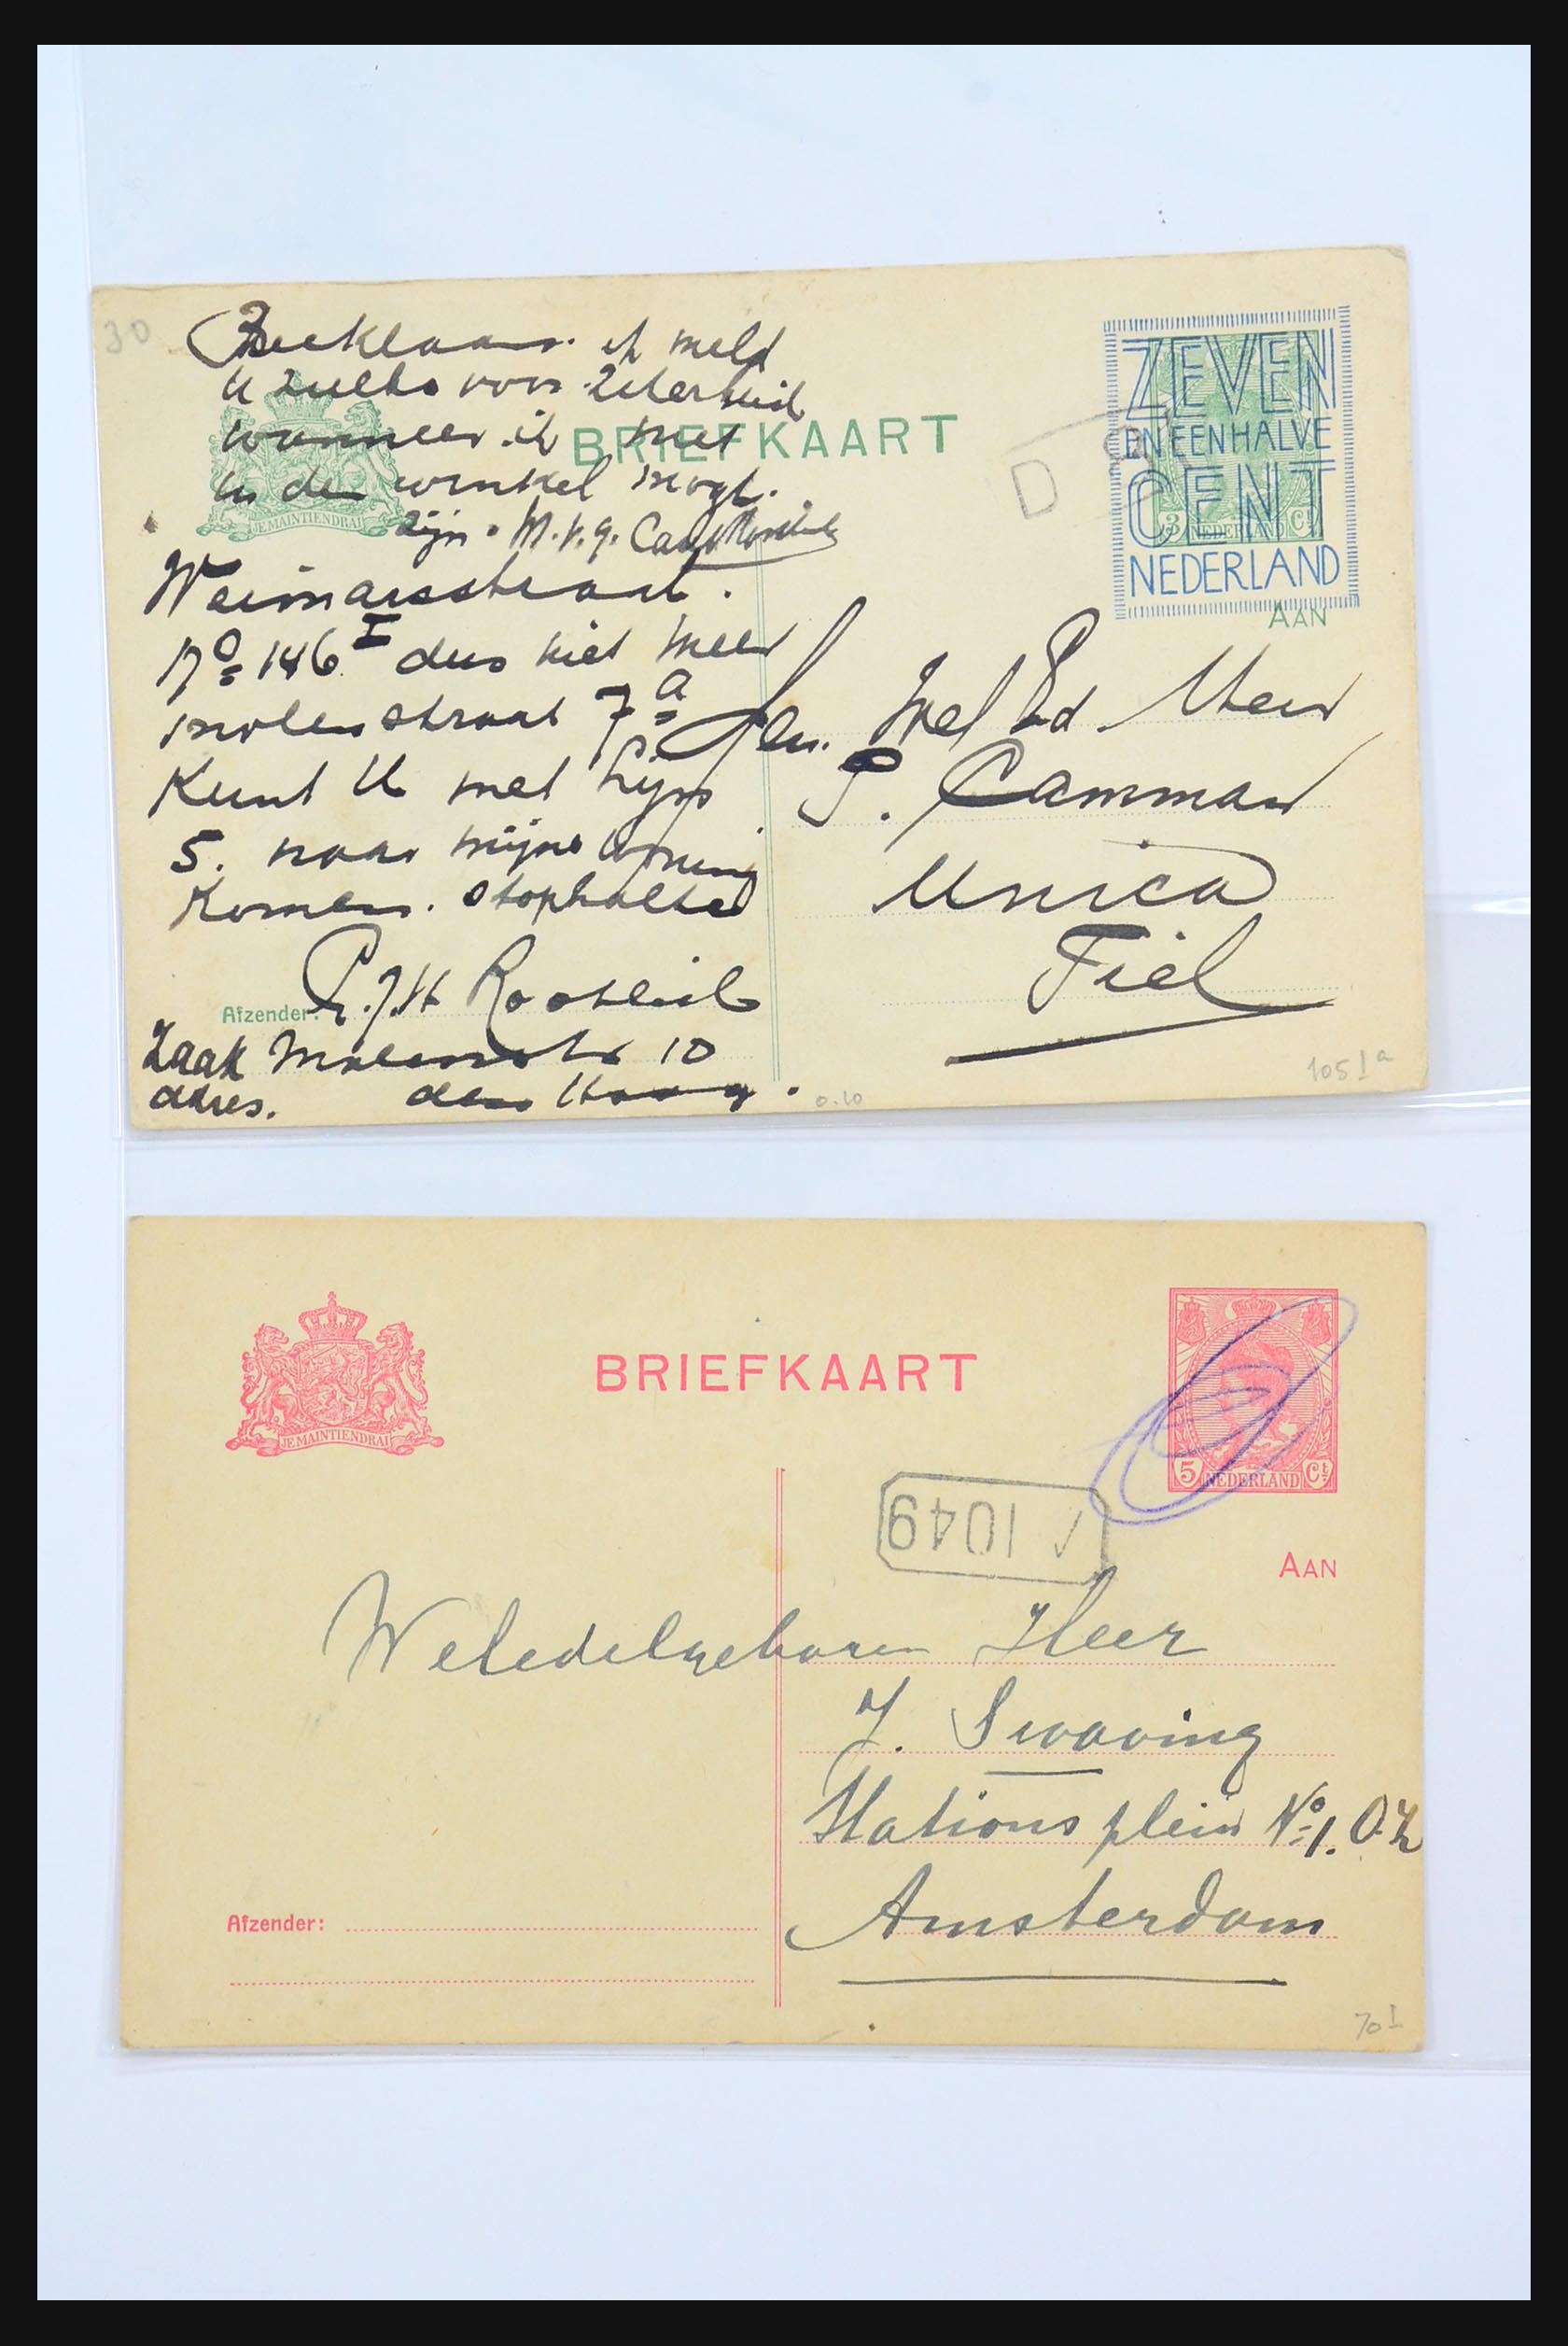 30
ik meld
U zulks voor zekerheid
wanneer ik niet
in den winkel mogt
zijn. M.v.g.
BRIEFKAART
JE MAINTIENDRAI
ZEVEN
EN EEN HALVE
CENT
NEDERLAND
3 NEDERLAND Ct
AAN
Weimarsstraat.
No 146 I dus niet meer
molenstraat 7a
Kunt U met Lijn
5. naar mijne woning
Komen. Stophalte
Afzender: P.J.H
Zaak Molenstr 10
adres. den Haag.
Den Wel Ed. Heer
P. Camman
Unica
Tiel
105 I a
0.10
BRIEFKAART
JE MAINTIENDRAI
5 NEDERLAND Ct
1049
AAN
Weledelgeboren Heer
J. Swaving
Stationsplein No 1. O.Z
Amsterdam
Afzender:
70 I